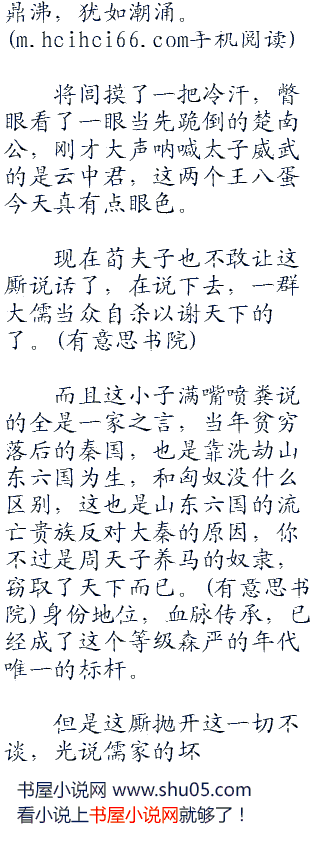 鼎沸，犹如潮涌。
(m.hcihci66.com手机阅读)
将闾摸了一把冷汗，瞥
眼看了一眼当先跪倒的楚南
公，刚才大声呐喊太子威武
的是云中君，这两个王八蛋
今天真有点眼色。
现在荀夫子也不敢让这
厮说话了，在说下去，一群
大儒当众自杀以谢天下的
了。(有意思书院)
而且这小子满嘴喷粪说
的全是一家之言，当年贫穷
落后的秦国，也是靠洗劫山
东六国为生，和匈奴没什么
区别，这也是山东六国的流
亡贵族反对大秦的原因，你
不过是周天子养马的奴隶，
窃取了天下而已。(有意思书
院)身份地位，血脉传承，已
经成了这个等级森严的年代
唯一的标杆。
但是这厮抛开这一切不
谈，光说儒家的坏
书屋小说网 www.shu05.com
看小说上书屋小说网就够了！